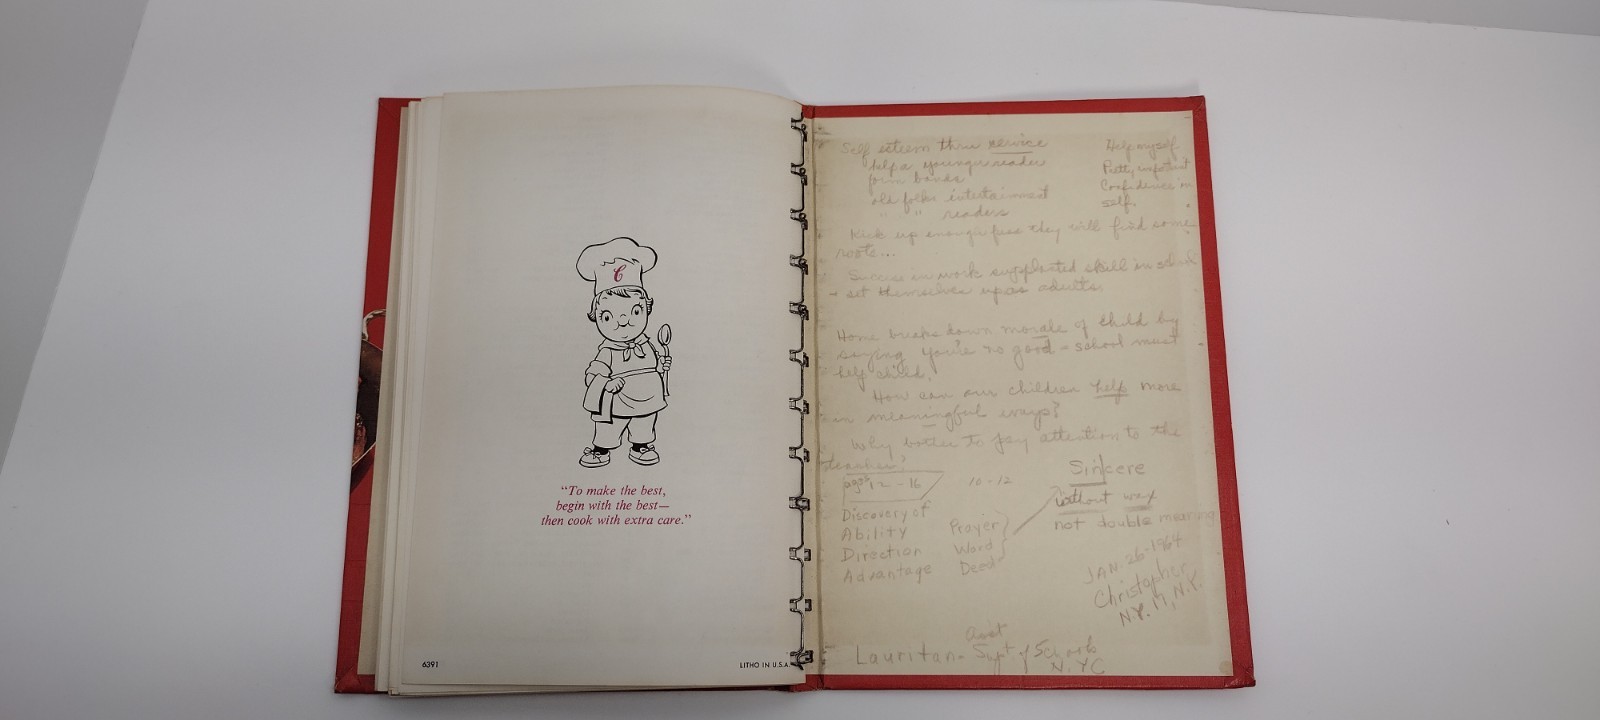 C
"To make the best,
begin with the best—
then cook with extra care."
6391
LITHO IN U.S.A.
Self esteem thru service
help a younger reader
form bonds
old folks entertainment
" " readers
Help myself
Pretty important
Confidence in
self
Kick up enough fuss they will find some
roots...
Success in work supplanted skill in school
set themselves up as adults.
Home breaks down morale of child by
saying you're no good - school must
help child.
How can our children help more
in meaningful ways?
Why bother to pay attention to the
teacher?
ages 12-16
10-12
Discovery of
Ability
Direction
Advantage
Prayer
Word
Deed
Sincere
without wax
not double meaning
JAN. 26-1964
Christopher,
N.Y. 17, N.Y.
Lauritan - Asst
Supt. of Schools
N.YC